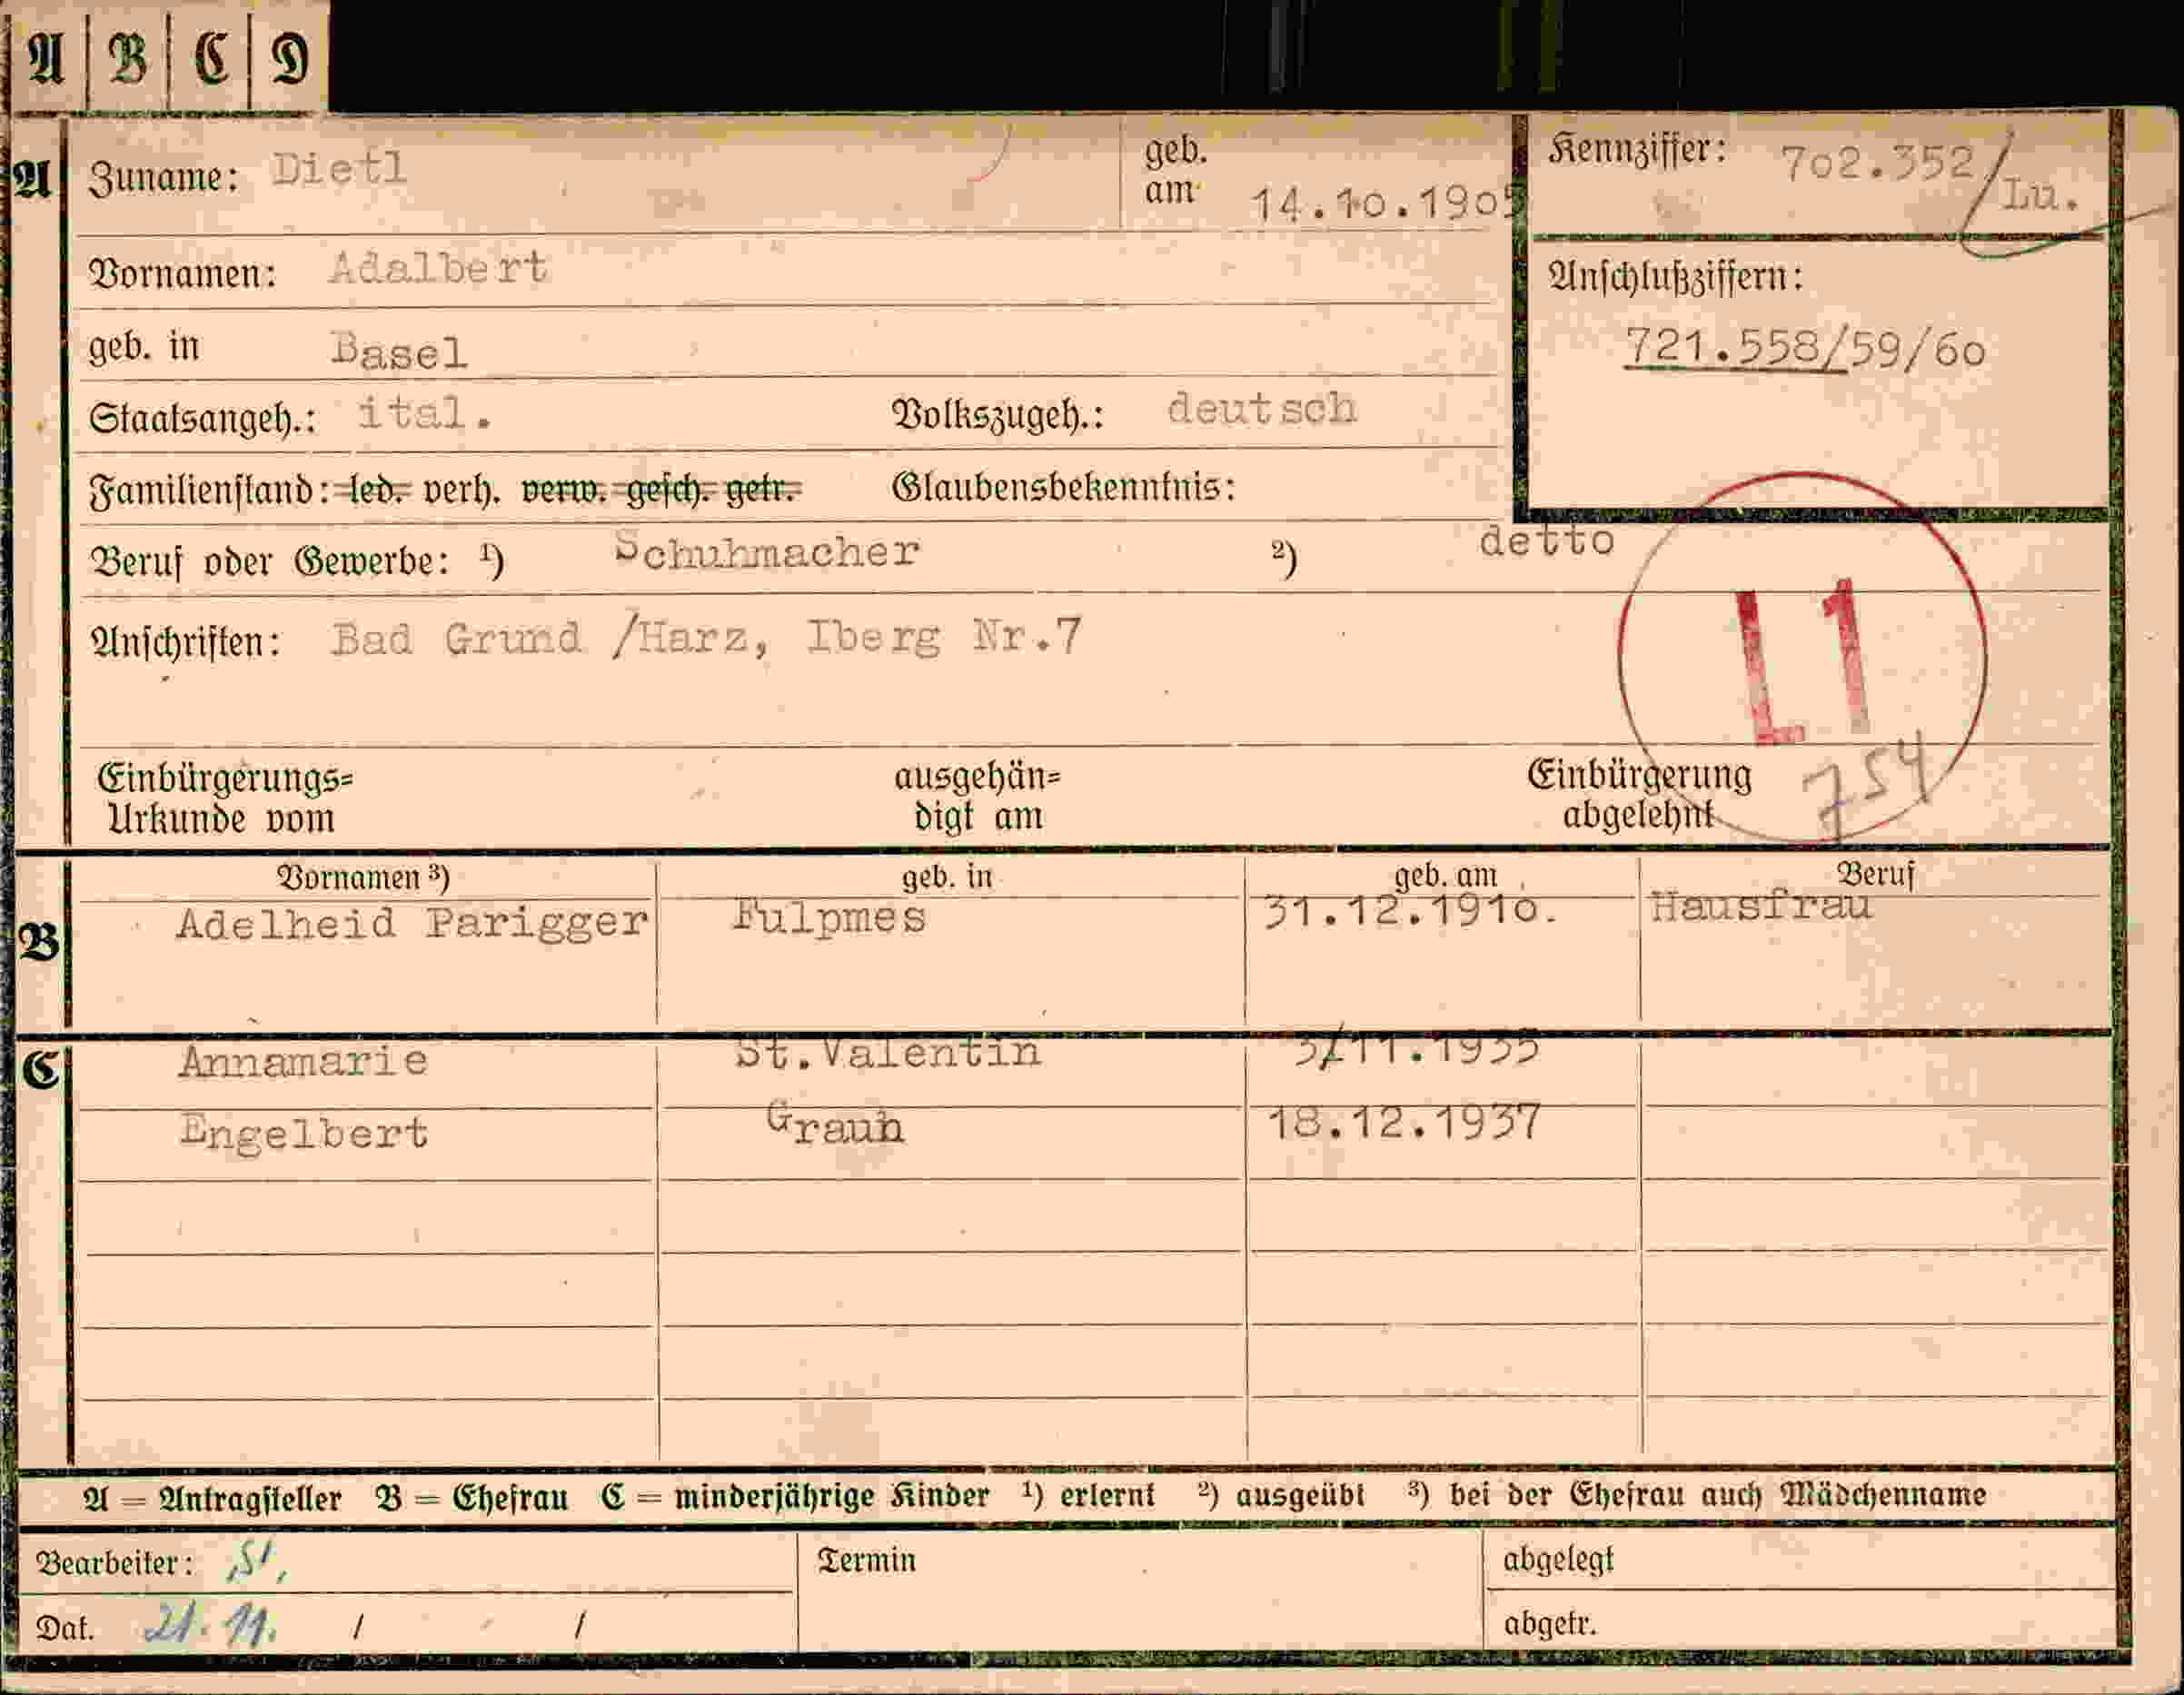 A B C D
A Zuname: Dietl geb. am 14.10.1905 Kennziffer: 702.352/Lu.
Vornamen: Adalbert Anschlußziffern:
geb. in Basel 721.558/59/60
Staatsangeh.: ital. Volkszugeh.: deutsch
Familienstand: led. verh. verw. gesch. getr. Glaubensbekenntnis:
Beruf oder Gewerbe: 1) Schuhmacher 2) detto
Anschriften: Bad Grund /Harz, Iberg Nr.7
L1
754
Einbürgerungs= ausgehän= Einbürgerung
Urkunde vom digt am abgelehnt
Vornamen 3) geb. in geb. am Beruf
B Adelheid Parigger Fulpmes 31.12.1910. Hausfrau
C Annamarie St.Valentin 3/11.1935
Engelbert Graun 18.12.1937
A = Antragsteller B = Ehefrau C = minderjährige Kinder 1) erlernt 2) ausgeübt 3) bei der Ehefrau auch Mädchenname
Bearbeiter: Termin abgelegt
Dat. 21.11. / / abgetr.